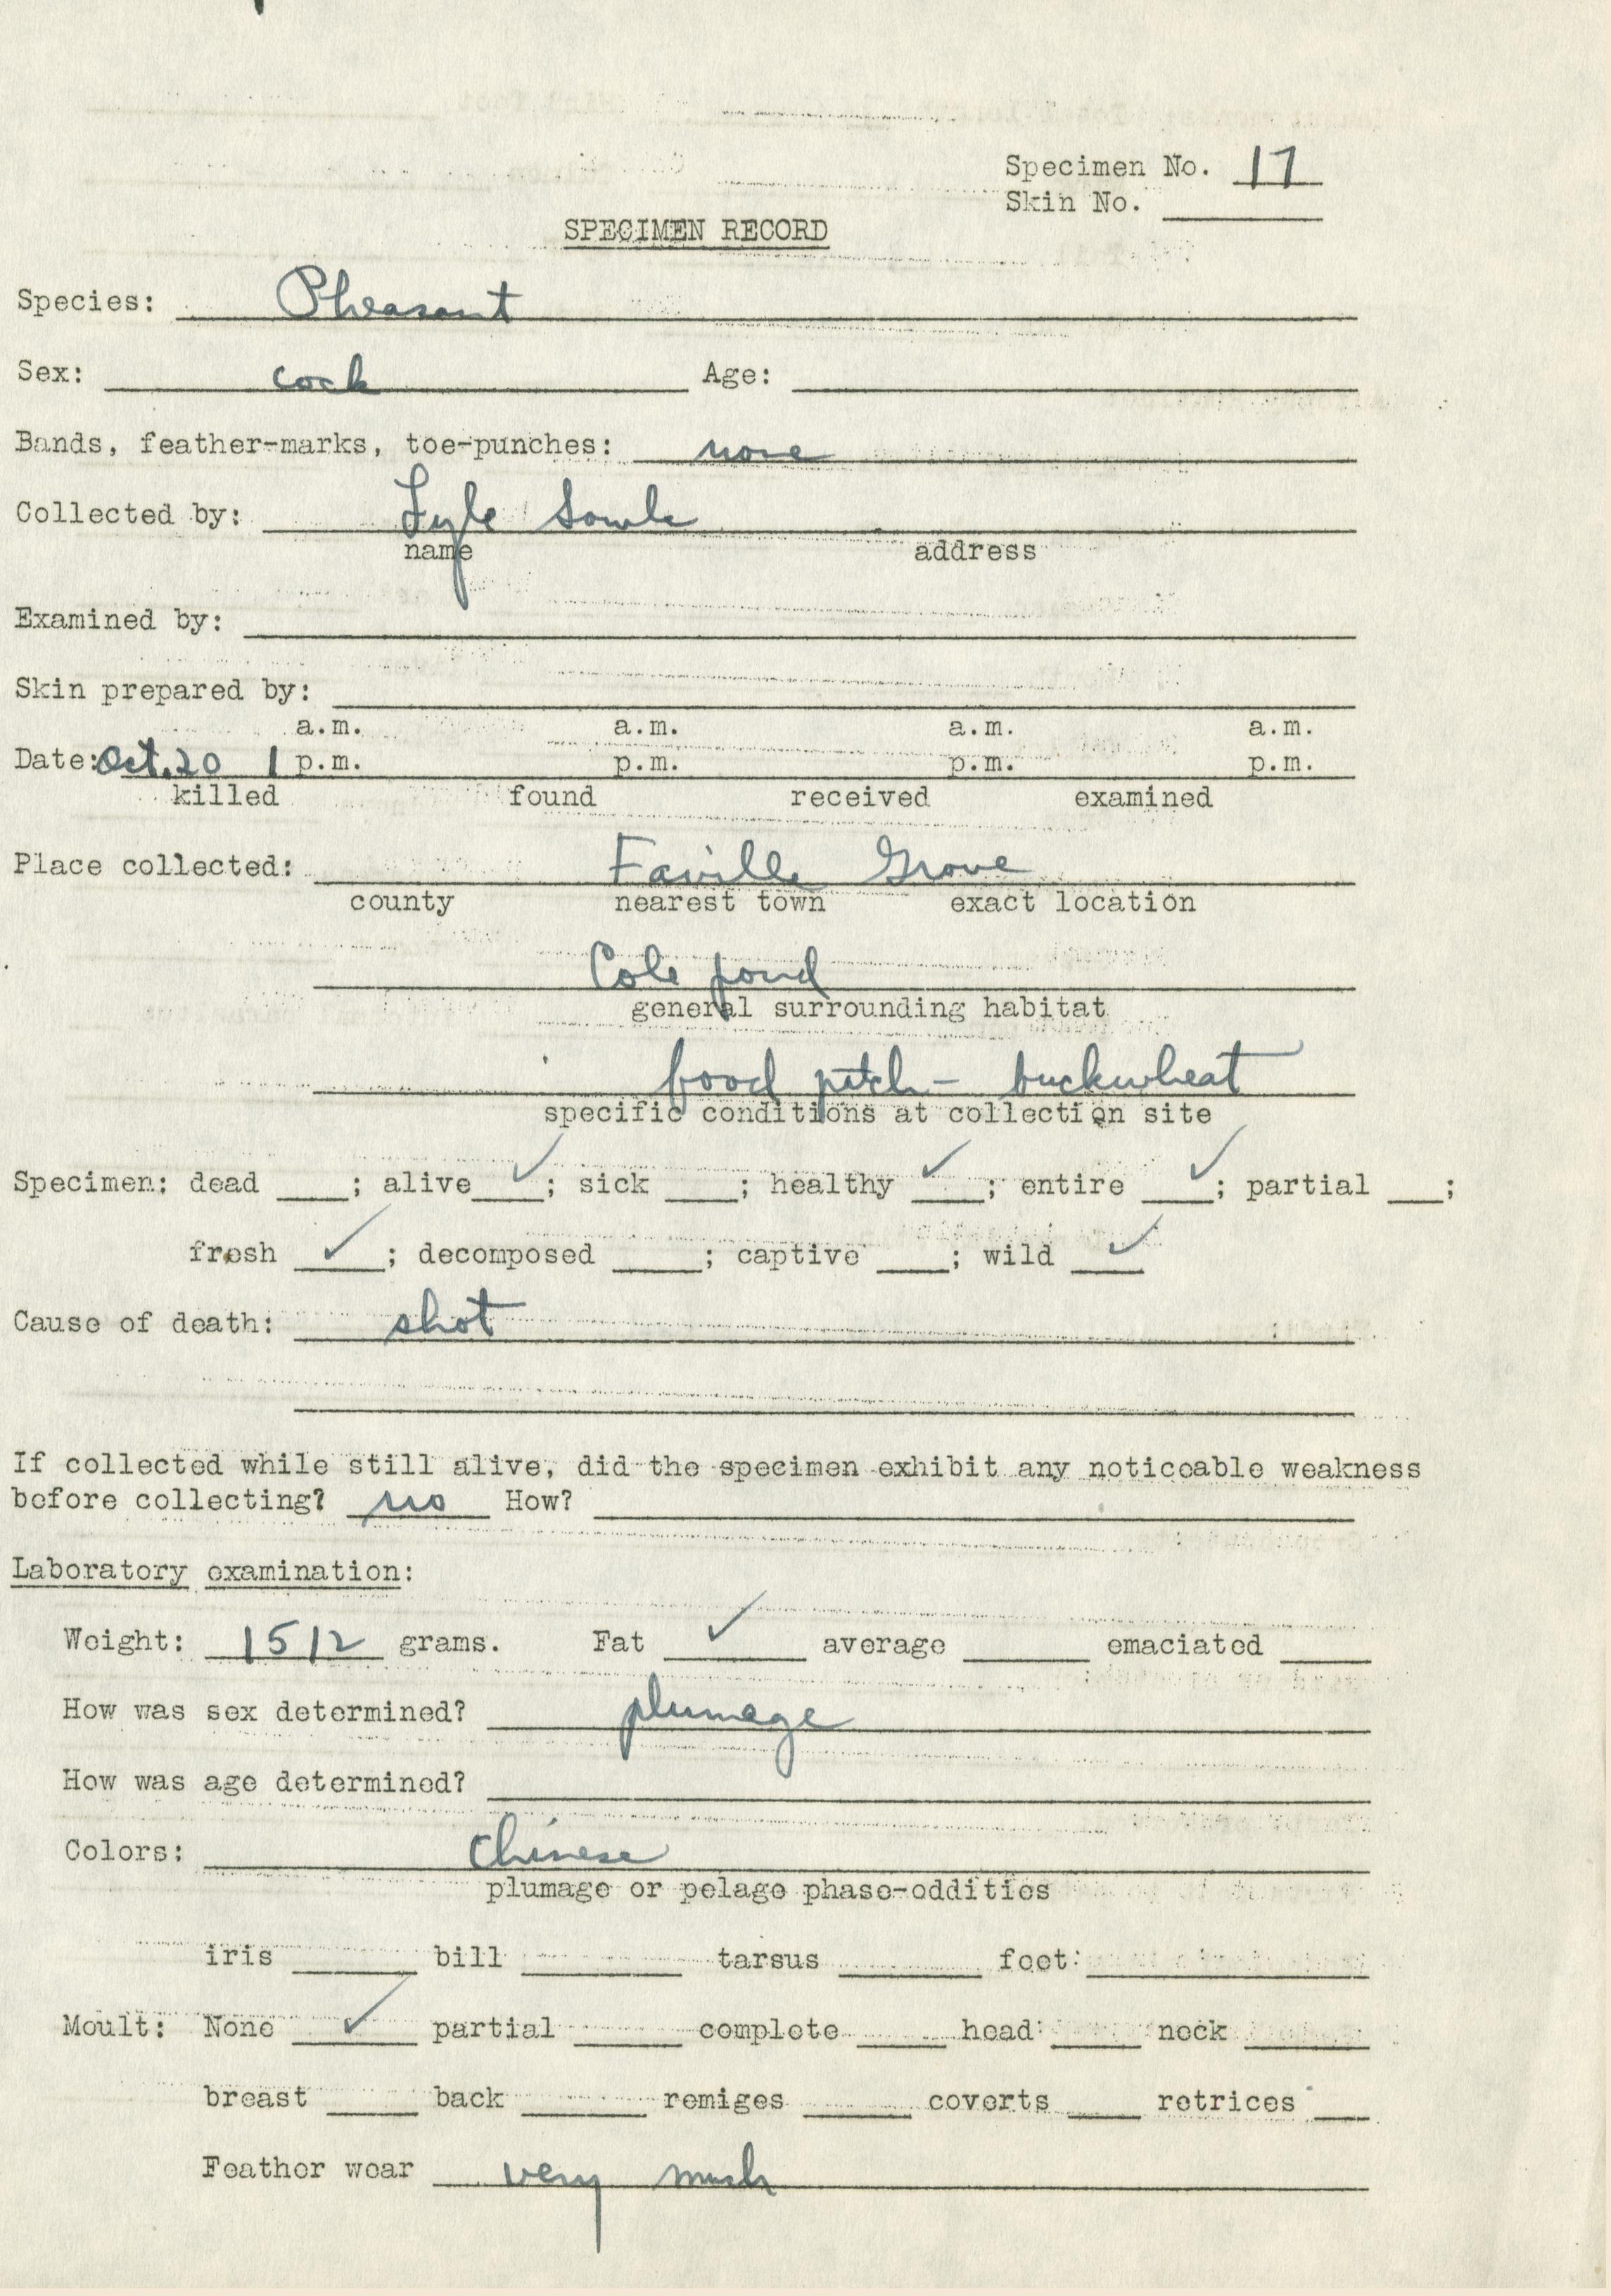 Specimen No. 17
Skin No. ____
SPECIMEN RECORD
Species: Pheasant
Sex: cock Age: ____
Bands, feather-marks, toe-punches: none
Collected by: Lyle Sowls
name address
Examined by: ____
Skin prepared by: ____
a.m. a.m. a.m. a.m.
Date: Oct. 20 1 p.m. p.m. p.m. p.m.
killed found received examined
Place collected: Faville Grove
county nearest town exact location
Cole pond
general surrounding habitat
food patch - buckwheat
specific conditions at collection site
Specimen: dead ____; alive ✓; sick ____; healthy ✓; entire ✓; partial ____;
fresh ✓; decomposed ____; captive ____; wild ✓
Cause of death: shot
If collected while still alive, did the specimen exhibit any noticeable weakness
before collecting? no How? ____
Laboratory examination:
Weight: 1512 grams. Fat ✓ average ____ emaciated ____
How was sex determined? plumage
How was age determined? ____
Colors: Chinese
plumage or pelage phase-oddities
iris ____ bill ____ tarsus ____ foot: ____
Moult: None ✓ partial ____ complete ____ head ____ neck ____
breast ____ back ____ remiges ____ coverts ____ retrices ____
Feather wear very much